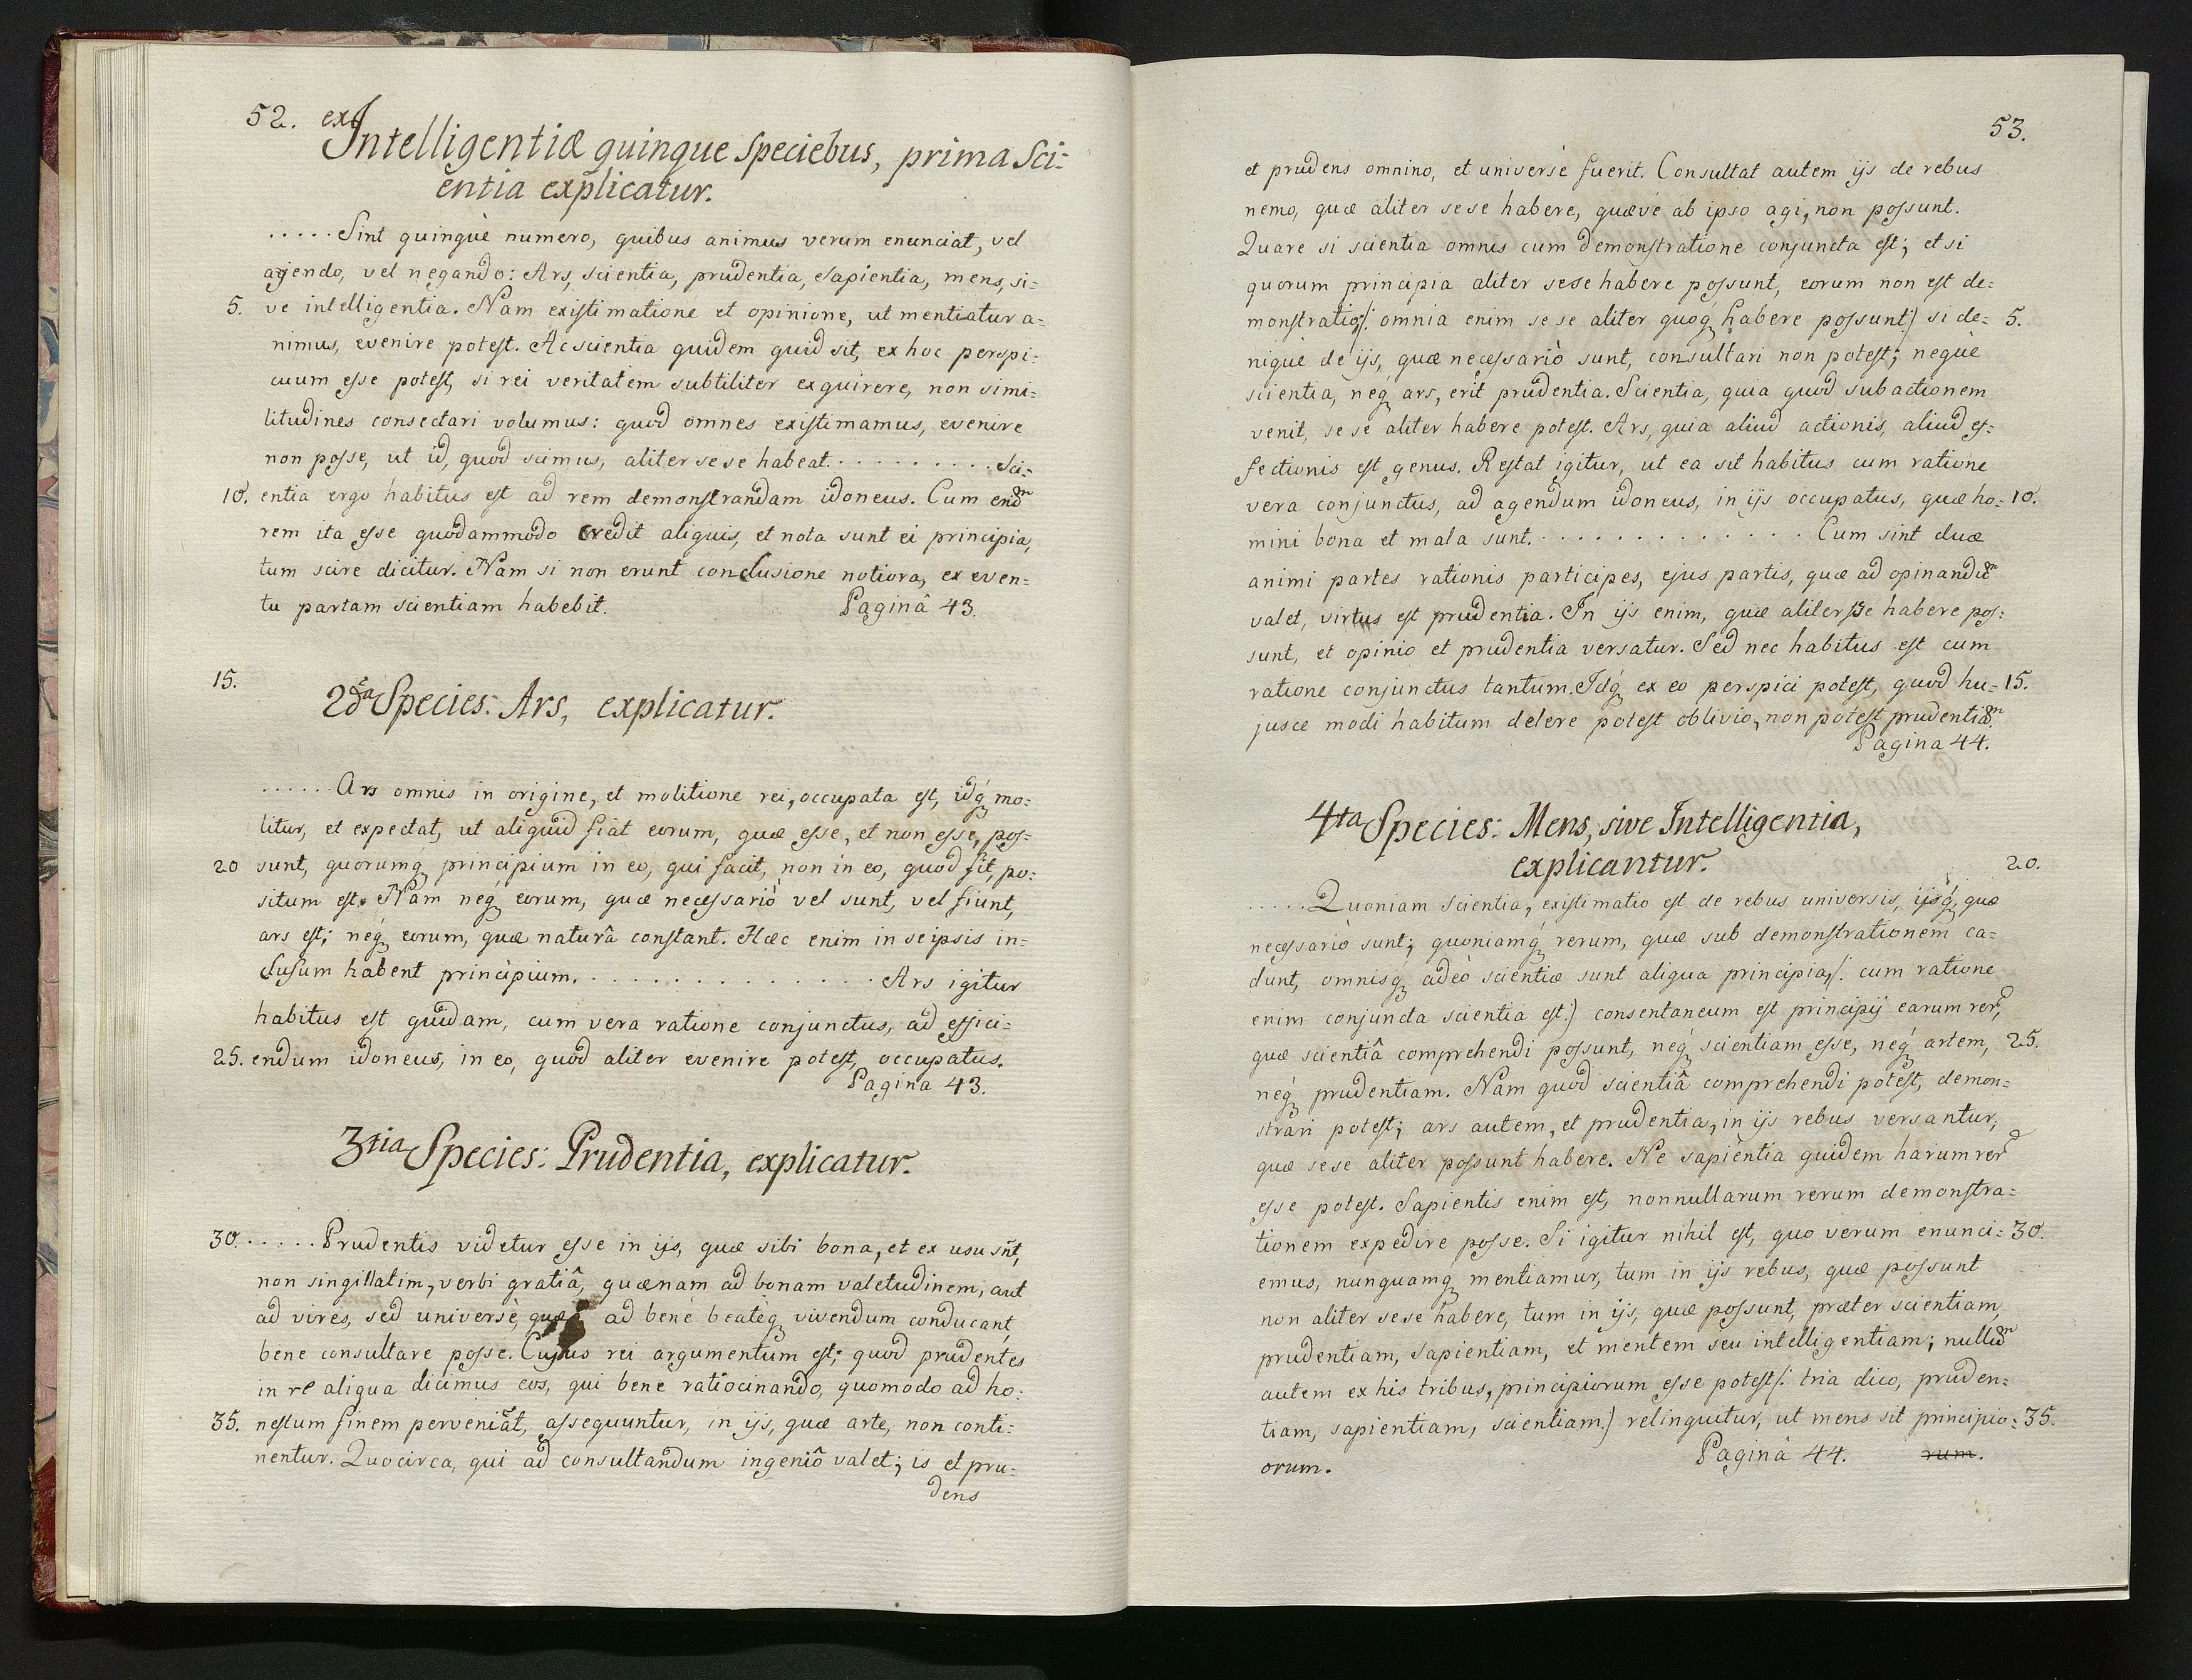 52. ex Intelligentiæ quinque speciebus, prima Sci=
entia explicatur.
.....Sint quinquè numero, quibus animus verum enunciat, vel
ajendo, vel negando: Ars, scientia, prudentia, sapientia, mens, si=
5. ve intelligentia. Nam existimatione et opinione, ut mentiatur a=
nimus, evenire potest. Ac scientia quidem quid sit, ex hoc perspi=
cuum esse potest, si rei veritatem subtiliter exquirere, non simi=
litudines consectari volumus: quod omnes existimamus, evenire
non posse, ut id, quod scimus, aliter sese habeat. . . . . . . . . . Sci=
10. entia ergo habitus est ad rem demonstrandam idoneus. Cum end̅m
rem ita esse quodammodo credit aliquis, et nota sunt ei principia,
tum scire dicitur. Nam si non erunt conclusione notiora, ex even=
tu partam scientiam habebit. Paginâ 43.
15.
2da Species: Ars, explicatur.
......Ars omnis in origine, et molitione rei, occupata est, idq́ mo=
litur, et expectat, ut aliquid fiat eorum, quæ esse, et non esse, pos=
20 sunt, quorumq́ principium in eo, qui facit, non in eo, quod fit, po=
situm est. Nam neq́ eorum, quæ necessariò vel sunt, vel fiunt,
ars est; neq́ eorum, quæ naturâ constant. Hæc enim in seipsis in=
clusum habent principium. . . . . . . . . . . . . . Ars igitur
habitus est quidam, cum vera ratione conjunctus, ad effici=
25. endum idoneus, in eo, quod aliter evenire potest, occupatus.
Pagina 43.
3tia Species: Prudentia, explicatur.
30. .....Prudentis videtur esse in ijs, quæ sibi bona, et ex usu sñt,
non singillatim, verbi gratiâ, quænam ad bonam valetudinem, aut
ad vires, sed universè, quæ ad benè beateq́ vivendum conducant,
bene consultare posse. Cujus rei argumentum est; quod prudentes
in re aliqua dicimus eos, qui benè ratiocinando, quomodo ad ho=
35. nestum finem perveniāt, assequuntur, in ijs, quæ arte, non conti=
nentur. Quocirca, qui ad consultandum ingeniô valet; is et pru=
dens
53.
et prudens omnino, et universè fuerit. Consultat autem ijs de rebus
nemo, quæ aliter sese habere, quævè ab ipso agi, non possunt.
Quare si scientia omnis cum demonstratione conjuncta est; et si
quorum principia aliter sese habere possunt, eorum non est de=
monstratio/: omnia enim sese aliter quoq́ habere possunt:/ si de= 5.
niquè de ijs, quæ necessariò sunt, consultari non potest; nequè
scientia, neq́ ars, erit prudentia. Scientia, quia quod sub actionem
venit, sese aliter habere potest. Ars, quia aliud actionis, aliud ef=
fectionis est genus. Restat igitur, ut ea sit habitus cum ratione
vera conjunctus, ad agendum idoneus, in ijs occupatus, quæ ho= 10.
mini bona et mala sunt. . . . . . . . . . . . . . Cum sint duæ
animi partes rationis participes, ejus partis, quæ ad opinandum
valet, virtus est prudentia. In ijs enim, quæ aliter se habere pos=
sunt, et opinio et prudentia versatur. Sed nec habitus est cum
ratione conjunctus tantum. Idq́ ex eo perspici potest, quod hu= 15.
jusce modi habitum delere potest oblivio, non potest prudentiam.
Pagina 44.
4ta Species: Mens, sive Intelligentia,
explicantur. 20.
.....Quoniam scientia, existimatio est de rebus universis, ijsq́, quæ
necessariò sunt; quoniamq́ rerum, quæ sub demonstrationem ca=
dunt, omnisq́ adeò scientiæ sunt aliqua principia,/: cum ratione
enim conjuncta scientia est:/ consentaneum est principij earum rer̄,
quæ scientiâ comprehendi possunt, neq́ scientiam esse, neq́ artem, 25.
neq́ prudentiam. Nam quod scientiâ comprehendi potest, demon=
strari potest; ars autem, et prudentia, in ijs rebus versantur,
quæ sese aliter possunt habere. Ne sapientia quidem harum rer̄
esse potest. Sapientis enim est, nonnullarum rerum demonstra=
tionem expedire posse. Si igitur nihil est, quo verum enunci= 30.
emus, nunquamq́ mentiamur, tum in ijs rebus, quæ possunt
non aliter sese habere, tum in ijs, quæ possunt, præter scientiam,
prudentiam, sapientiam, et mentem seu intelligentiam; nullum
autem ex his tribus, principiorum esse potest/: tria dico, pruden=
tiam, sapientiam, scientiam:/ relinquitur, ut mens sit principio= 35.
orum. Paginâ 44. rum.